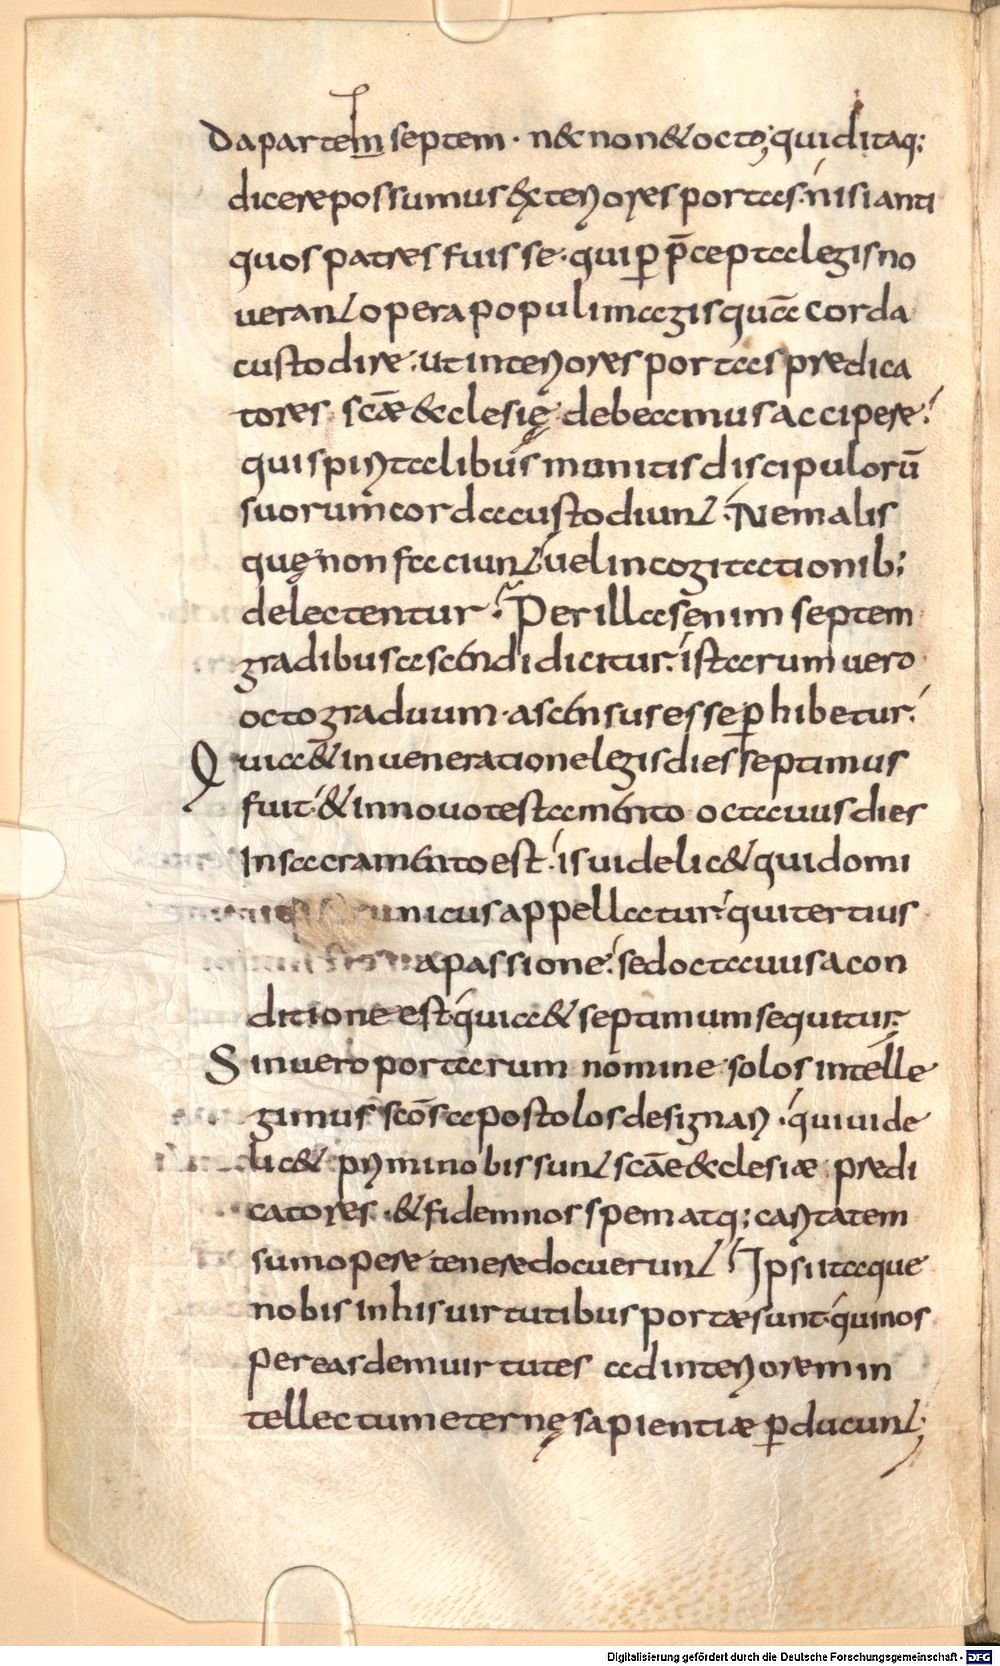 Da partem septem · n& non & octo; quid itaq;
dicere possumus exteriores portas · nisi anti
quos patres fuisse · qui p̱ p̄cepta legis no
uerant opera populi magis quā corda
custodire · ut interiores portas predica
tores scāe &clesię debeamus accipere ·
qui spiritalibus monitis discipulorū
suorum corda custodiunt · Ne malis
quę non faciunt uel in cogitationib;
delectentur · Per illas enim septem
gradibus ascendi dicitur · istarum uero
octo graduum · ascensus esse p̱hibetur ·
Quia & in ueneratione legis dies septimus
fuit · & in nouo testamento octauus dies
In sacramento est · is uidelic& qui domi
nicus appellatur · qui tertius
a passione · sed octauus a con
ditione est · quia & septimum sequitur ·
Sin uero portarum nomine solos intelle
gimus scōs apostolos designari · qui uide
lic& primi nobis sunt scāe &clesiae predi
catores · & fidem nos spem atq; caritatem
sumopere tenere docuerunt · Ipsi itaque
nobis in his uirtutibus portae sunt · qui nos
per easdem uirtutes ad interiorem in
tellectum eternę sapientiae p̱ducunt;
Digitalisierung gefördert durch die Deutsche Forschungsgemeinschaft - DFG